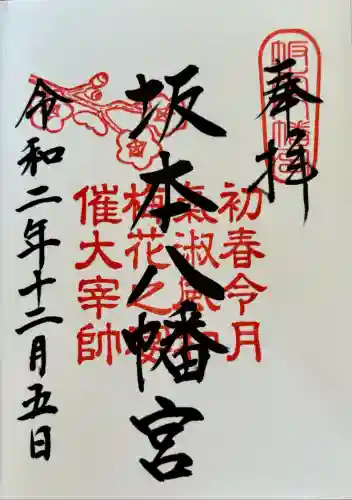 奉拝
坂本八幡宮
令和二年十二月五日
坂本八幡宮
初春令月
氣淑風和
梅花之宴
催大宰帥